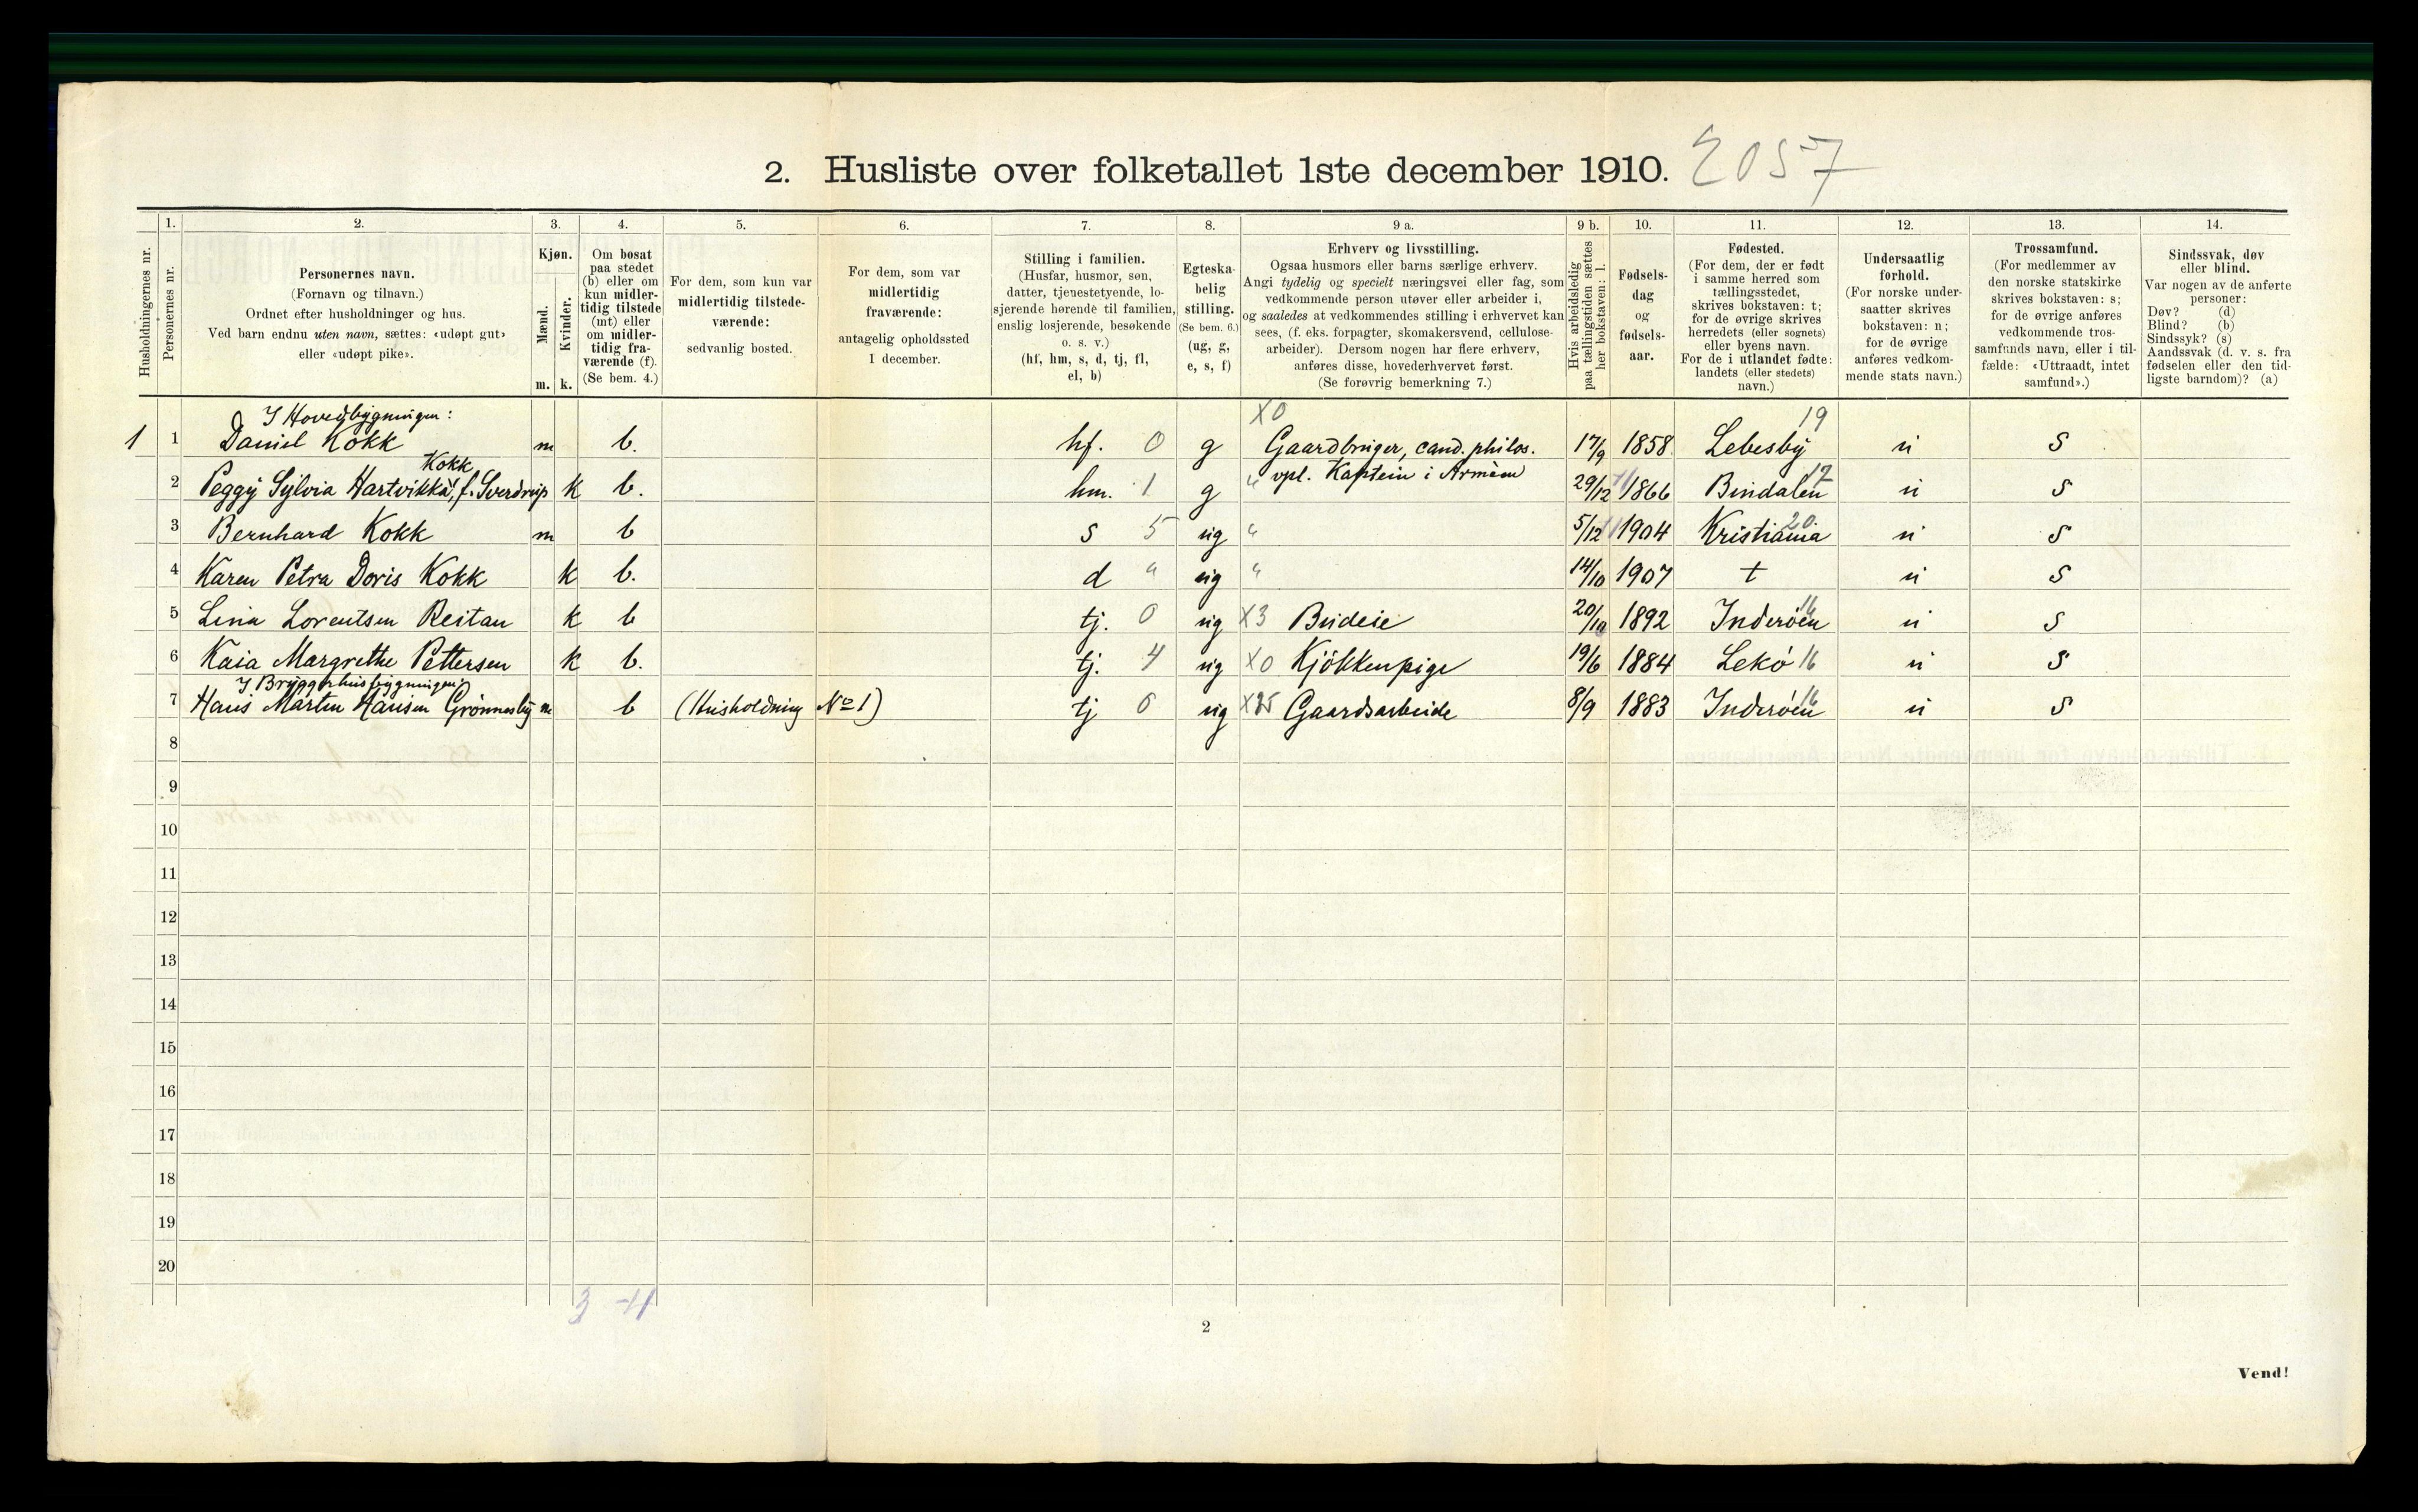 2. Husliste over folketallet 1ste december 1910. 2057
Husholdningernes nr.
1.
Personernes nr.
2.
Personernes navn.
(Fornavn og tilnavn.)
Ordnet efter husholdninger og hus.
Ved barn endnu uten navn, sættes: «udøpt gut»
eller «udøpt pike».
3.
Kjøn.
Mænd.
Kvinder.
m. k.
4.
Om bosat
paa stedet
(b) eller om
kun midler-
tidig tilstede
(mt) eller
om midler-
tidig fra-
værende (f).
(Se bem. 4.)
5.
For dem, som kun var
midlertidig tilstede-
værende:
sedvanlig bosted.
6.
For dem, som var
midlertidig
fraværende:
antagelig opholdssted
1 december.
7.
Stilling i familien.
(Husfar, husmor, søn,
datter, tjenestetyende, lo-
sjerende hørende til familien,
enslig losjerende, besøkende
o. s. v.)
(hf, hm, s, d, tj, fl,
el, b)
8.
Egteska-
belig
stilling.
(Se bem. 6.)
(ug, g,
e, s, f)
9 a.
Erhverv og livsstilling.
Ogsaa husmors eller barns særlige erhverv.
Angi tydelig og specielt næringsvei eller fag, som
vedkommende person utøver eller arbeider i,
og saaledes at vedkommendes stilling i erhvervet kan
sees, (f. eks. forpagter, skomakersvend, cellulose-
arbeider). Dersom nogen har flere erhverv,
anføres disse, hovederhvervet først.
(Se forøvrig bemerkning 7.)
9 b.
Hvis arbeidsledig
paa tællingstiden sættes
her bokstaven: l.
10.
Fødsels-
dag
og
fødsels-
aar.
11.
Fødested.
(For dem, der er født
i samme herred som
tællingsstedet,
skrives bokstaven: t;
for de øvrige skrives
herredets (eller sognets)
eller byens navn.
For de i utlandet fødte:
landets (eller stedets)
navn.)
12.
Undersaatlig
forhold.
(For norske under-
saatter skrives
bokstaven: n;
for de øvrige
anføres vedkom-
mende stats navn.)
13.
Trossamfund.
(For medlemmer av
den norske statskirke
skrives bokstaven: s;
for de øvrige anføres
vedkommende tros-
samfunds navn, eller i til-
fælde: «Uttraadt, intet
samfund».)
14.
Sindssvak, døv
eller blind.
Var nogen av de anførte
personer:
Døv? (d)
Blind? (b)
Sindssyk? (s)
Aandssvak (d. v. s. fra
fødselen eller den tid-
ligste barndom)? (a)
I Hovedbygningen: X0 19
1 1 Daniel Kokk m b. hf. 0 g Gaardbruger, cand. philos. 17/9 1858 Lebesby n S
Kokk vpl. Kaptein i Armeen 17
2 Peggy Sylvia Hartvikka, f. Sverdrup k b. hm. 1 g " 29/12 1866 Bindalen n S
3 Bernhard Kokk m b s 5 ug " 5/12 1904 Kristiania 20 n S
4 Karen Petra Doris Kokk k b. d " ug " 14/10 1907 t n S
5 Lina Lorentsen Reitan k b tj. 0 ug X3 Budeie 20/10 1892 Inderøen 16 n S
6 Kaia Margrethe Pettersen k b. tj. 4 ug X0 Kjökkenpige 19/6 1884 Lekö 16 n S
I Bryggerhusbygningen:
7 Hans Martin Hansen Grönnesby m b (Husholdning No 1) tj 6 ug X25 Gaardsarbeide 8/9 1883 Inderöen 16 n S
8
9
10
11
12
13
14
15
16
17
18
19
20
3 - 4
2
Vend!